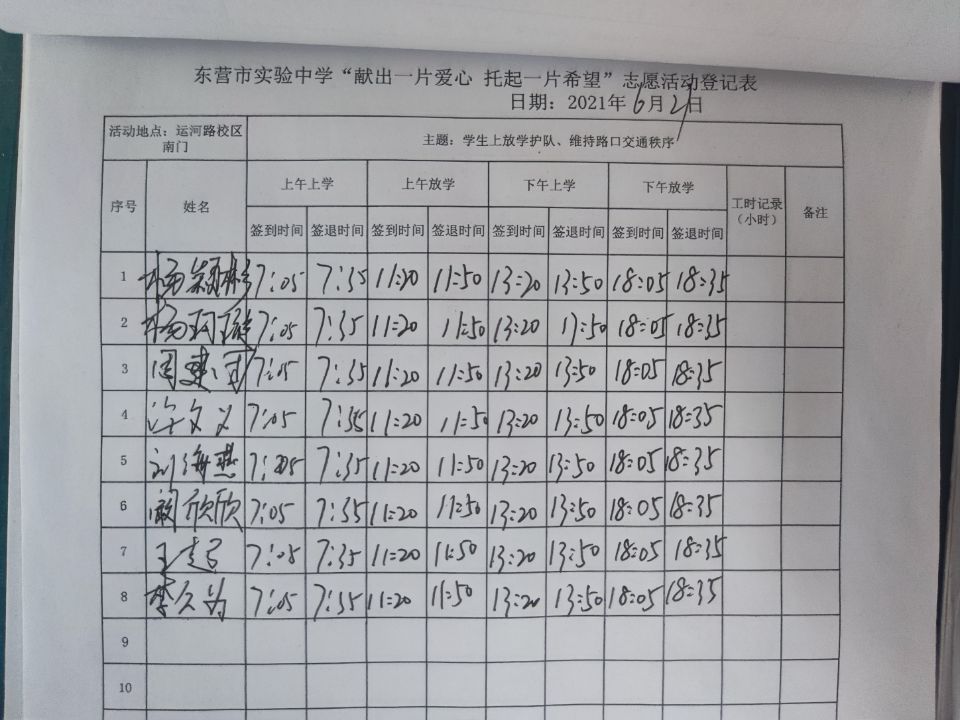 东营市实验中学“献出一片爱心 托起一片希望”志愿活动登记表
日期：2021年6月21日
活动地点：运河路校区南门 主题：学生上放学护队、维持路口交通秩序
序号 姓名 上午上学 上午放学 下午上学 下午放学 工时记录（小时） 备注
签到时间 签退时间 签到时间 签退时间 签到时间 签退时间 签到时间 签退时间
1 杨颖彬 7:05 7:35 11:20 11:50 13:20 13:50 18:05 18:35
2 杨珂璇 7:05 7:35 11:20 11:50 13:20 13:50 18:05 18:35
3 周建 7:05 7:35 11:20 11:50 13:20 13:50 18:05 18:35
4 许文义 7:05 7:35 11:20 11:50 13:20 13:50 18:05 18:35
5 刘海燕 7:05 7:35 11:20 11:50 13:20 13:50 18:05 18:35
6 阚欣欣 7:05 7:35 11:20 11:50 13:20 13:50 18:05 18:35
7 王 7:05 7:35 11:20 11:50 13:20 13:50 18:05 18:35
8 李 7:05 7:35 11:20 11:50 13:20 13:50 18:05 18:35
9
10